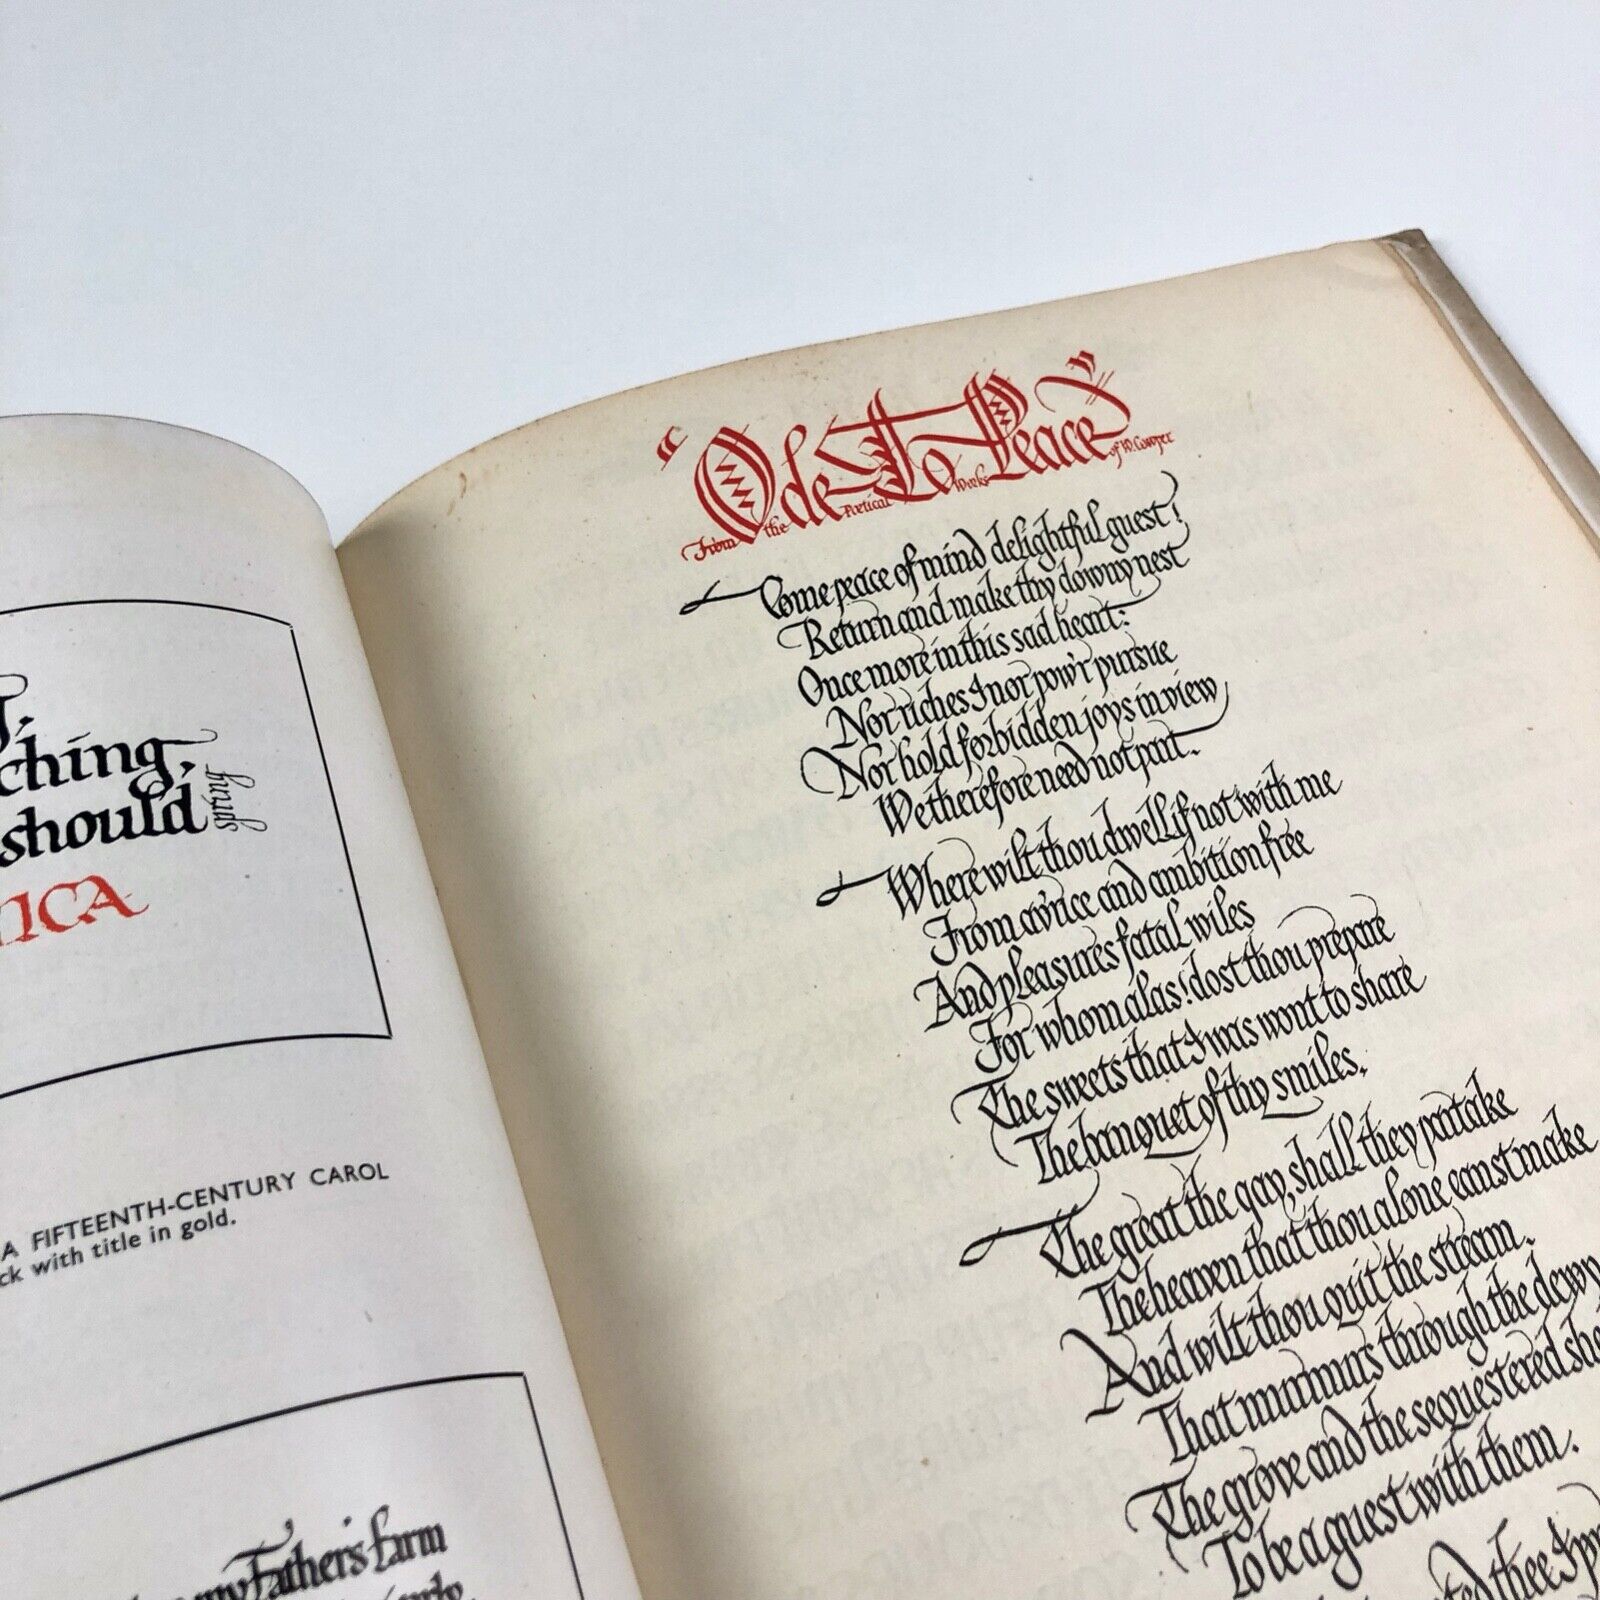 J,
ching,
should
heads
NICA
A FIFTEENTH-CENTURY CAROL
ck with title in gold.
my Father's farm
early
"Ode To Peace"
From the Poetical Works of W. Cowper
Come peace of mind delightful guest!
Return and make thy downy nest
Once more in this sad heart:
Nor riches I nor pow'r pursue
Nor hold forbidden joys in view
We therefore need not part.
Where wilt thou dwell if not with me
From av'rice and ambition free
And pleasures fatal wiles
For whom alas! dost thou prepare
The sweets that I was wont to share
The banquet of thy smiles.
The great the gay, shall they partake
The heaven that thou alone canst make
And wilt thou quit the stream.
That murmurs through the dewy
The grove and the sequestered she
To be a guest with them.
thee I pr